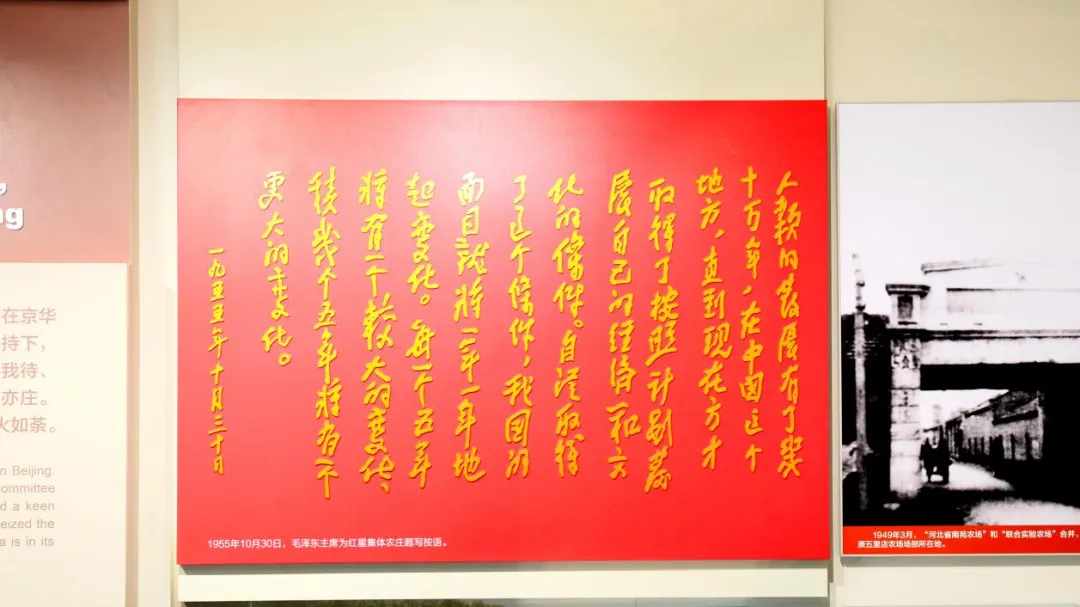 人類的發展有了幾
十万年，在中国这个
地方，直到现在方才
取得了按照计划發
展自己的经济和文
化的條件。自從取得
了这个條件，我国的
面目就将一年一年地
起变化。每一个五年
将有一个較大的变化、
積幾个五年将有一个
更大的变化。
一九五五年十月三十日
1955年10月30日，毛泽东主席为红星集体农庄题写按语。
1949年3月，“河北省南苑农场”和“联合实验农场”合并，
原五里店农场场部所在地。
在京华
持下，
我待、
亦庄。
火如荼。
n Beijing.
ommittee
d a keen
eized the
a is in its